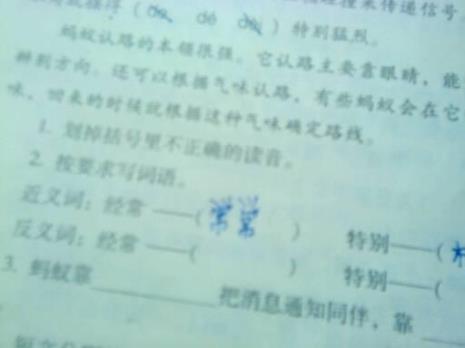 得(de dé děi)特别猛烈。
蚂蚁认路的本领很强。它认路主要靠眼睛,能
辨别方向。还可以根据气味认路,有些蚂蚁会在它
味,回来的时候就根据这种气味确定路线。
1. 划掉括号里不正确的读音。
2. 按要求写词语。
近义词:经常——(常常) 特别——(
反义词:经常——( ) 特别——(
3. 蚂蚁靠________把消息通知同伴,靠